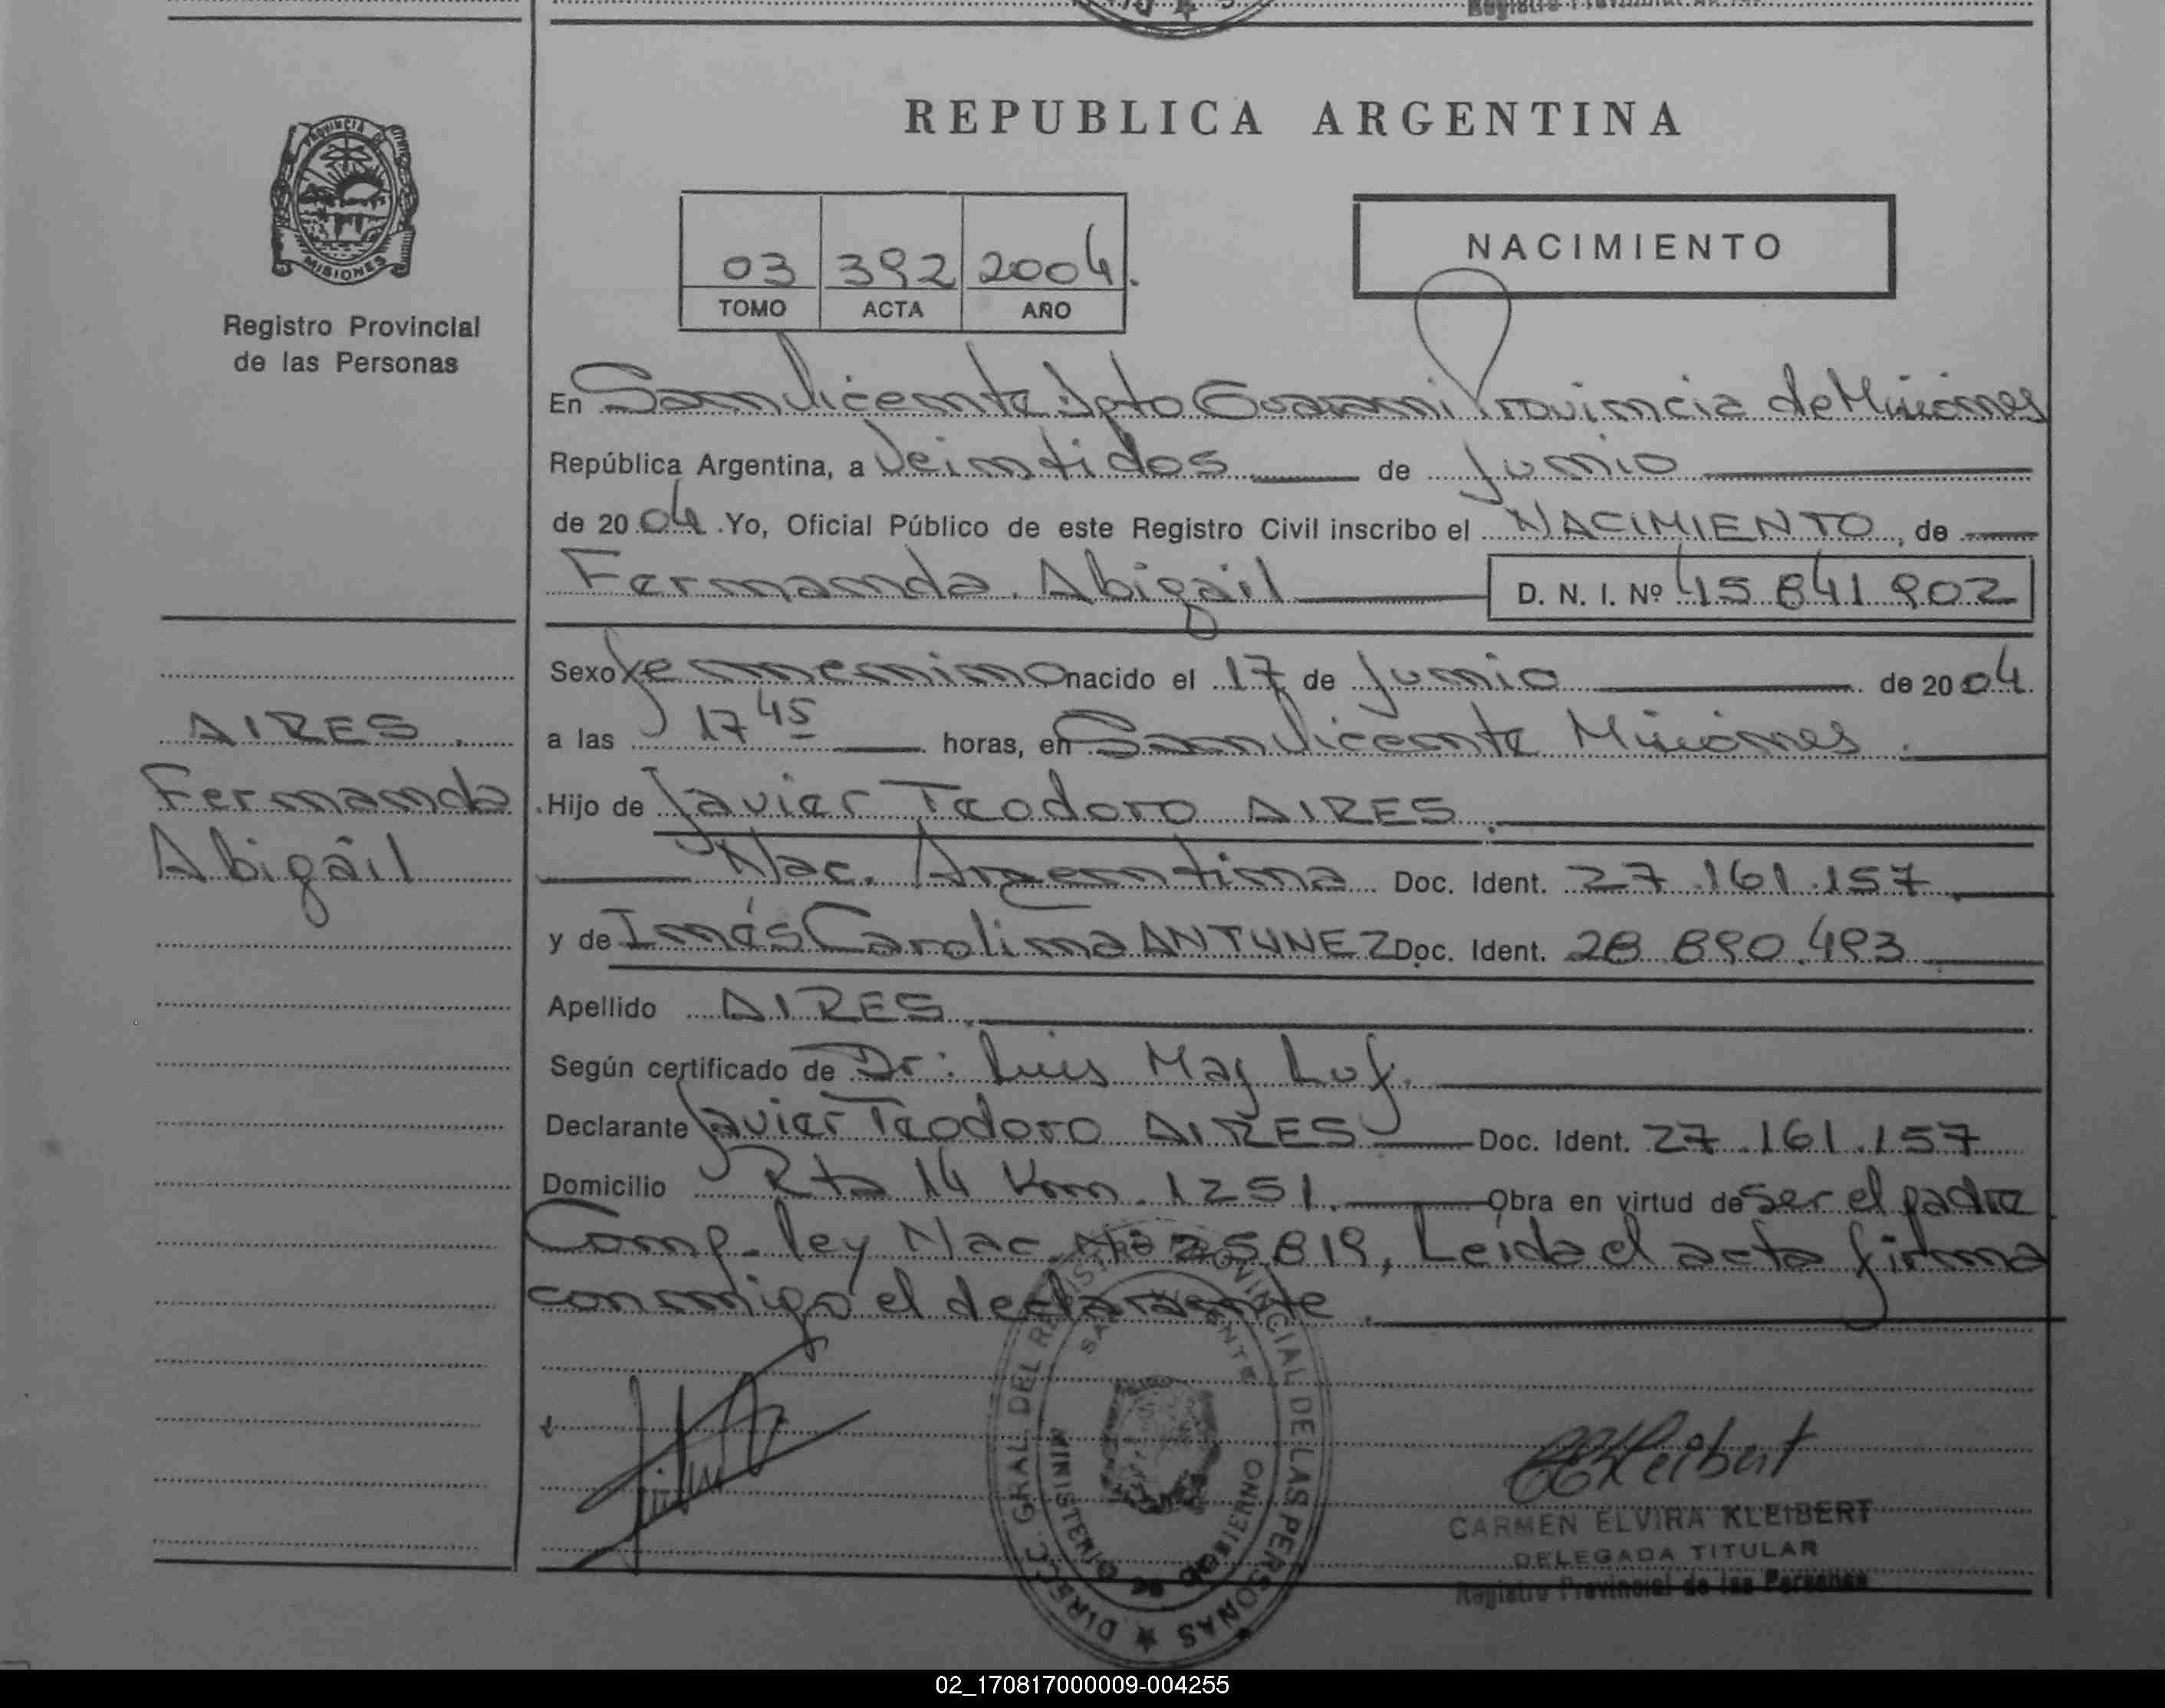 REPUBLICA ARGENTINA
PROVINCIA DE
MISIONES
Registro Provincial
de las Personas
03 392 2004.
TOMO ACTA AÑO
NACIMIENTO
En San Vicente Dpto Guarani Provincia de Misiones
República Argentina, a Veintidos de Junio
de 2004. Yo, Oficial Público de este Registro Civil inscribo el NACIMIENTO, de
Fernanda Abigail D. N. I. Nº 45 841 902
Sexo femenino nacido el 17 de Junio de 2004.
a las 17 45 horas, en San Vicente Misiones.
Hijo de Javier Teodoro AIRES.
Nac. Argentina Doc. Ident. 27.161.157
y de Inés Carolina ANTUNEZ Doc. Ident. 28 890.493
Apellido AIRES.
Según certificado de Dr: Luis May
Declarante Javier Teodoro AIRES Doc. Ident. 27.161.157
Domicilio Rta 14 Km. 1251. Obra en virtud de Ser el padre
Comp. ley Nac. Nro 25.819, Leida el acta firma
conmigo el declarante.
AIRES.
Fernanda
Abigail
DIRECC. GRAL. DEL REGISTRO PROVINCIAL DE LAS PERSONAS
SAN VICENTE
MINISTERIO DE GOBIERNO
CARMEN ELVIRA KLEIBERT
DELEGADA TITULAR
Registro Provincial de las Personas
02_170817000009-004255